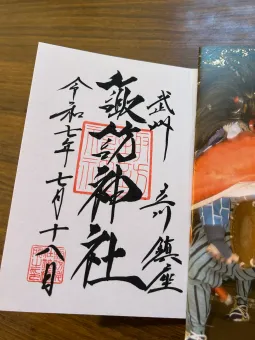 武州 立川鎮座
諏訪神社
令和七年七月十八日